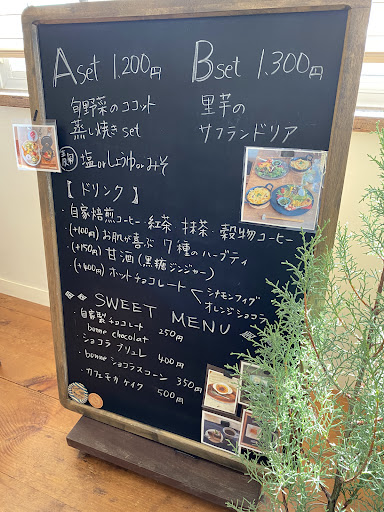 Aset 1.200円
Bset 1.300円
旬野菜のココット
蒸し焼きset
塩orしょうゆorみそ
里芋の
サフランドリア
【ドリンク】
・自家焙煎コーヒー・紅茶・抹茶・穀物コーヒー
・(+100円)お肌が喜ぶ 7種のハーブティ
・(+150円)甘酒(黒糖ジンジャー)
・(+400円)ホットチョコレート
シナモンフィグ
オレンジショコラ
SWEET MENU
・自家製チョコレート 250円
bonne chocolat
ショコラ ブリュレ 400円
・bonneショコラスコーン 350円
・カフェモカケイク 500円